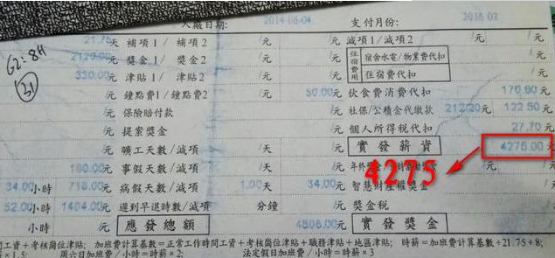 入職日期: 2014-06-04 支付月份:
21.75天 補項1/補項2 /元 /元 減項1/減項2 /元 /元
2120.00元 獎金1/獎金2 /元 /元 住宿費用 宿舍水電/物業費代扣 /元
330.00元 津貼1/津貼2 /元 /元 住宿費代扣 /元
G2:84 31 元 鐘點費1/鐘點費2 /元 50.00元 伙食費消費代扣 170.60元
元 保險賠付款 /元 社保/公積金代繳款 212/20元 122.50元
元 提案獎金 /元 個人所得稅代扣 27.70元
元 曠工天數/減項 /天 /元 實發薪資 4275.00元
160.00元 事假天數/減項 /天 /元 4275
34.00小時 718.00元 病假天數/減項 1.00天 34.00元 智慧財產權獎金 /元
52.00小時 1404.00元 遲到早退時數/減項 分鐘 /元 獎金稅 /元
小時 元 應發總額 元 實發獎金 /元
工資+考核崗位津貼; 加班費計算基數=正常工作時間工資+考核崗位津貼+職務津貼+地區津貼; 時薪=加班費計算基數÷21.75÷8;
周六日加班費/小時=時薪×2; 法定假日加班費/小時=時薪×3